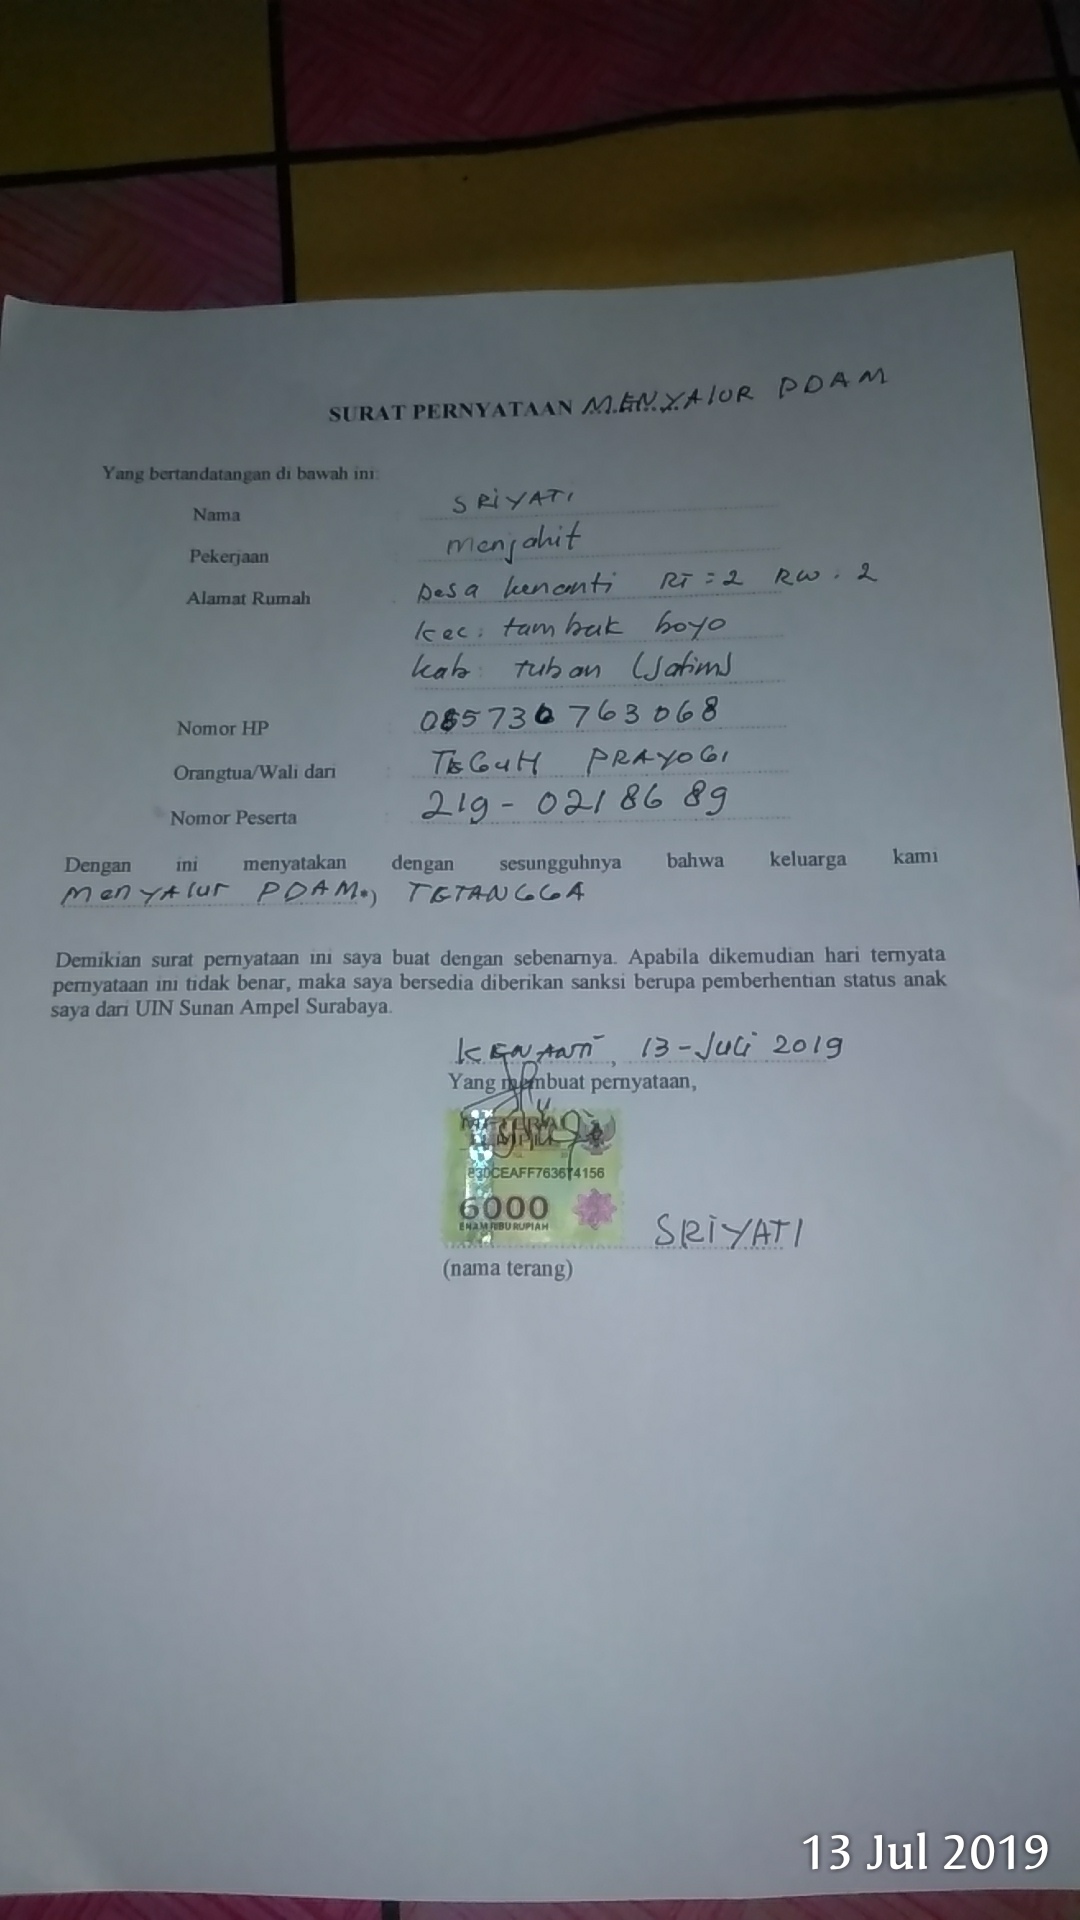 SURAT PERNYATAAN MENYALUR PDAM
Yang bertandatangan di bawah ini:
Nama : SRIYATI
Pekerjaan : menjahit
Alamat Rumah : Desa kenanti RT = 2 RW : 2
kec : tambak boyo
kab : tuban (Jatim)
Nomor HP : 085730763068
Orangtua/Wali dari : TEGUH PRAYOGI
Nomor Peserta : 219-0218689
Dengan ini menyatakan dengan sesungguhnya bahwa keluarga kami
menyalur PDAM*) TETANGGA
Demikian surat pernyataan ini saya buat dengan sebenarnya. Apabila dikemudian hari ternyata
pernyataan ini tidak benar, maka saya bersedia diberikan sanksi berupa pemberhentian status anak
saya dari UIN Sunan Ampel Surabaya.
KENANTI, 13-Juli 2019
Yang membuat pernyataan,
METERAI
TEMPEL
6000
ENAM RIBU RUPIAH
SRIYATI
(nama terang)
13 Jul 2019